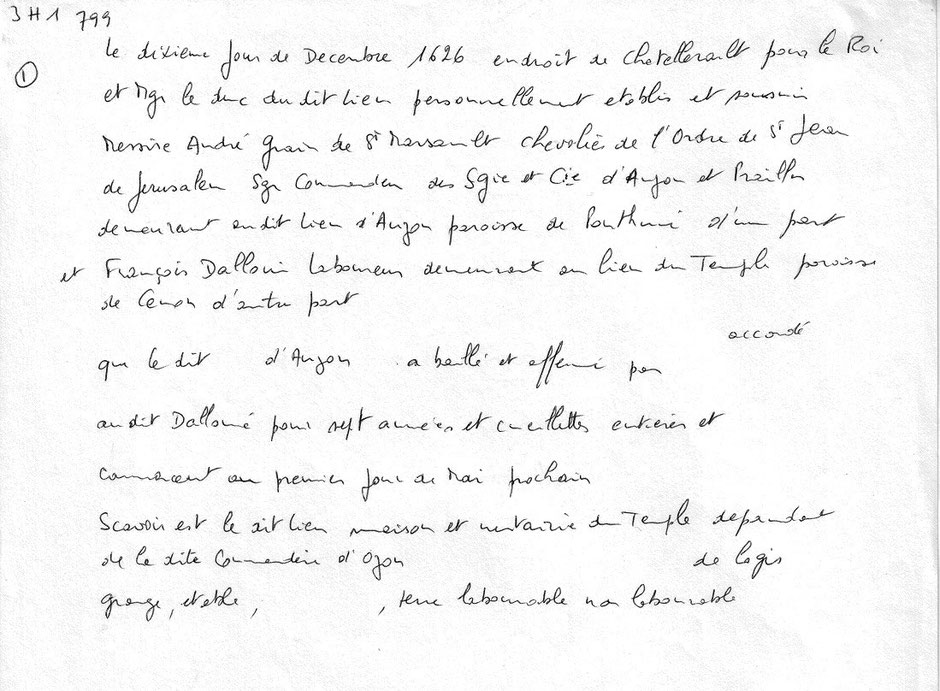 3 H 1 799
①
le dixieme jour de Decembre 1626 endroit de Chatellerault pour le Roi
et Mgr le duc du dit lieu personnellement etablis et soumis
Messire André Grain de St Marsault chevalier de l'Ordre de St Jean
de Jerusalem Sgr Commandeur des Sgie et Cie d'Auzon et Prailles
demeurant audit lieu d'Auzon paroisse de Ponthumé d'une part
et François Dalloué laboureur demeurant au lieu du Temple paroisse
de Cenon d'autre part
accordé
que le dit d'Auzon a baillé et affermé par
audit Dalloué pour sept années et cueillettes entieres et
commencent au premier jour de Mai prochain
Scavoir est le dit lieu maison et metairie du Temple dependant
de la dite Commanderie d'Ozon de logis
grange, etable, , terre labourable non labourable